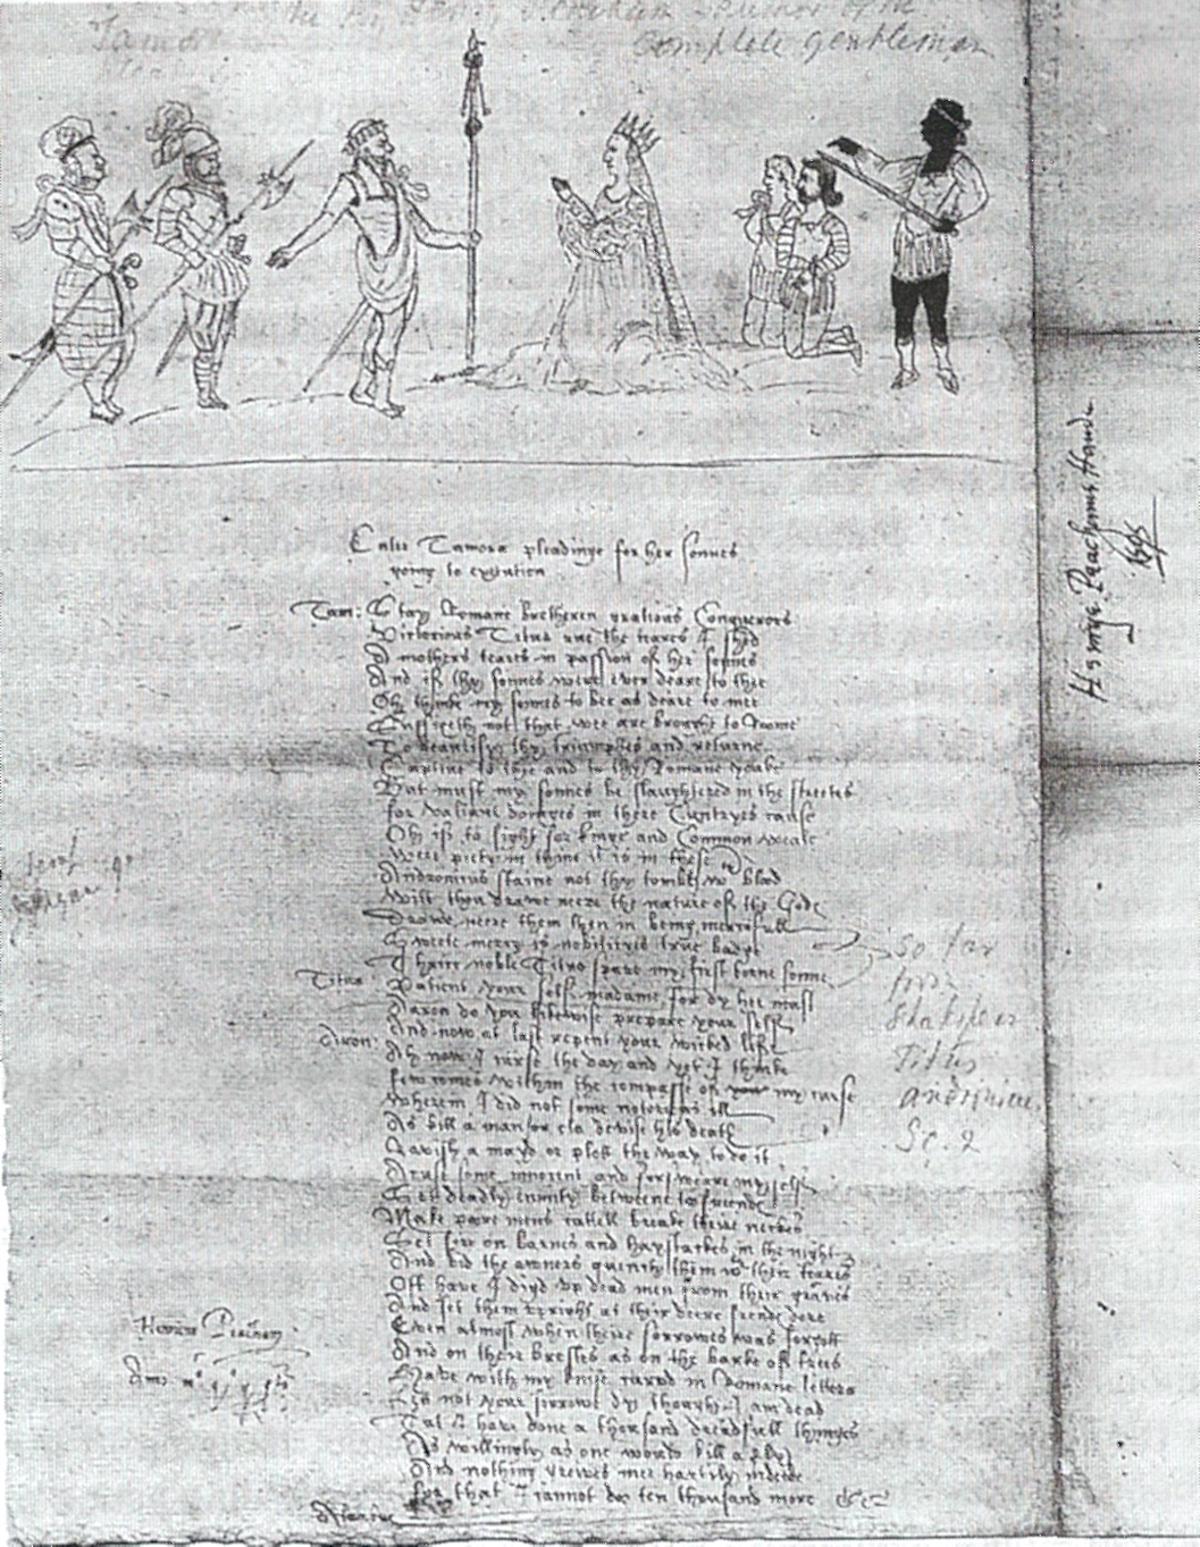 by Henry
Author of the
complete gentleman
Enter Tamora pleadinge for her sonnes
going to execution
Tam: Stay Romane bretheren gratious Conquerors
Victorious Titus rue the teares I shed
A mothers teares in passion of her sonnes
And if thy sonnes were ever deare to thee
Oh thinke my sonnes to bee as deare to mee
Sufficeth not that wee are brought to Roome
To beautify thy triumphes and returne
Captive to thee and to thy Romane yoake
But must my sonnes be slaughtered in the streetes
for valiant doinges in there Cuntryes cause
Oh if to fight for kinge and Common weale
Were piety in thine it is in these
Andronicus staine not thy tombe wth blood
Wilt thou drawe neere the nature of the Gods
Drawe neere them then in being mercifull
Sweete mercy is nobilityes true badge
Thrice noble Titus spare my first borne sonne
Titus: Patient your self madame for dy hee must
Aaron do you likewise prepare your self
And now at last repent your wicked life
Aron: Ah now I curse the day and yet I thinke
few comes within the compasse of my curse
Wherein I did not some notorious ill
As kill a man or els devise his death
Ravish a mayd or plott the way to do it
Acuse some innocent and forsweare my self
Set deadly enmity betweene too freendes
Make poore mens cattell breake theire neckes
Set fire on barnes and haystackes in the night
And bid the owners quench them wth their teares
Oft have I digd up dead men from their graves
And set them upright at their deere frends dore
Even almost when theire sorrowes was forgott
And on their brestes as on the barke of trees
Have with my knife carvd in Romane letters
Lett not your sorrowe dy though I am dead
Tut I have done a thousand dreadfull thinges
As willingly as one would kill a fly
And nothing greives mee hartily indeede
for that I cannot doo ten thousand more &c
Alarbus
so far
from
Shakspear
Titus
andronicus
Sc. 2
Henricus Peacham
Anno
Henrye Peachams Hande
1595